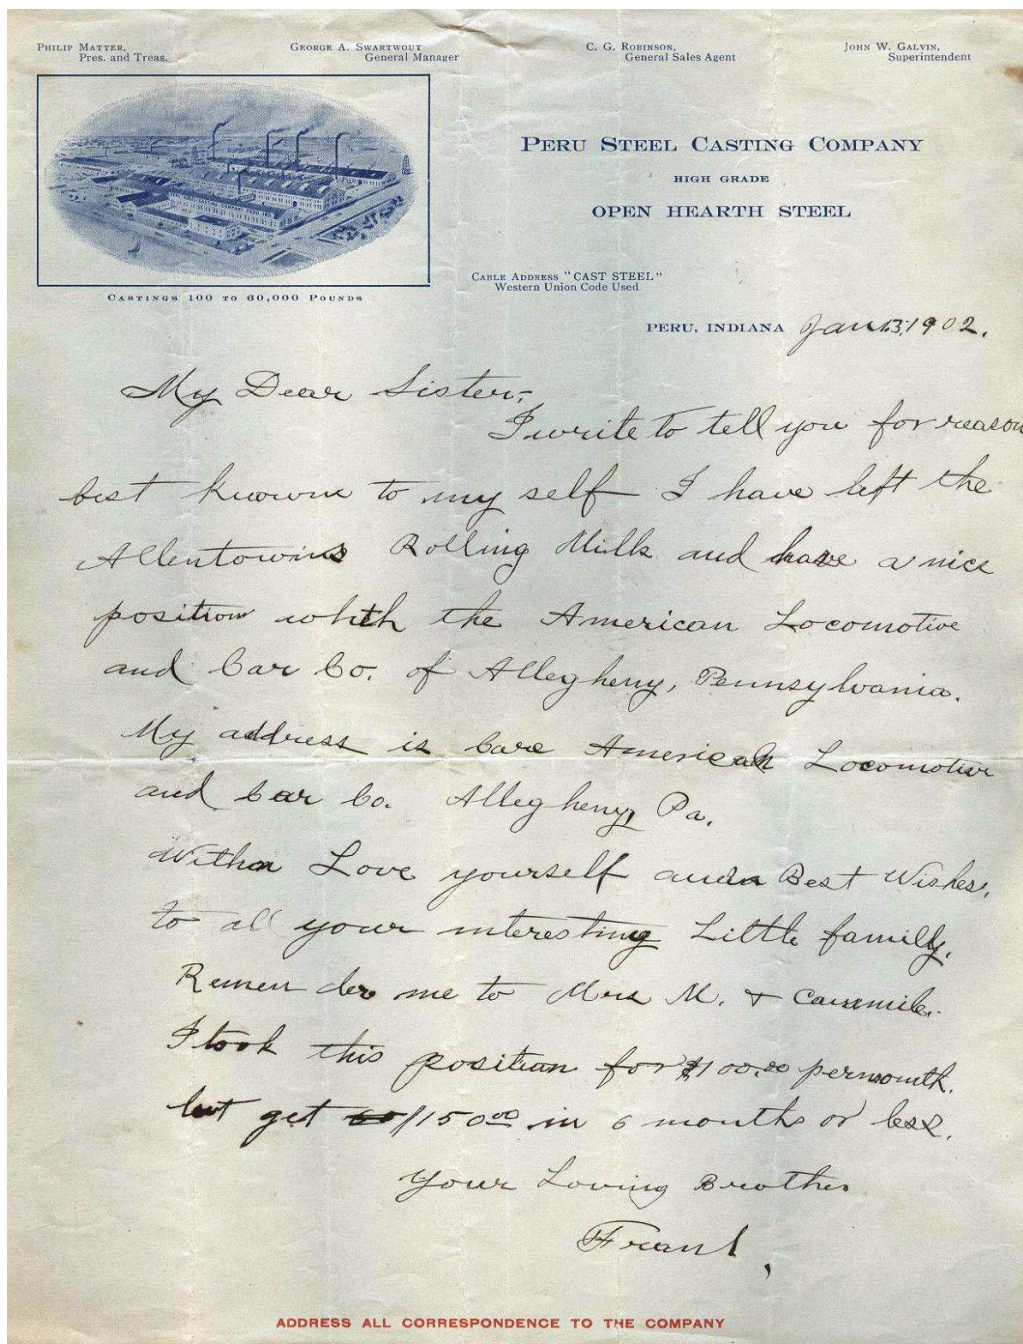 PHILIP MATTER,
Pres. and Treas.
GEORGE A. SWARTWOUT
General Manager
C. G. ROBINSON,
General Sales Agent
JOHN W. GALVIN,
Superintendent
PERU STEEL CASTING COMPANY
HIGH GRADE
OPEN HEARTH STEEL
CABLE ADDRESS "CAST STEEL"
Western Union Code Used
CASTINGS 100 TO 60,000 POUNDS
PERU, INDIANA Jan 13, 1902.
My Dear Sister,-
I write to tell you for reason
best known to my self I have left the
Allentowns Rolling Mills and have a nice
position with the American Locomotive
and Car Co. of Allegheny, Pennsylvania.
My address is Care American Locomotive
and Car Co. Allegheny, Pa.
With Love yourself and Best Wishes,
to all your interesting Little family.
Remember me to Mrs M. &
I took this position for $100.00 per month.
but get $150.00 in 6 months or less.
Your Loving Brother
Frank
ADDRESS ALL CORRESPONDENCE TO THE COMPANY